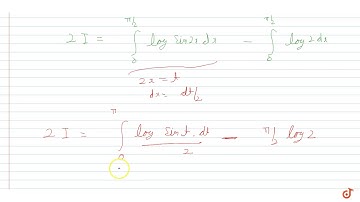 2 I = ∫₀^{π/2} log sin2x dx − ∫₀^{π/2} log 2 dx
2x = t
dx = dt/2
2 I = ∫₀^{π} log sin t . dt / 2 − π/2 log 2